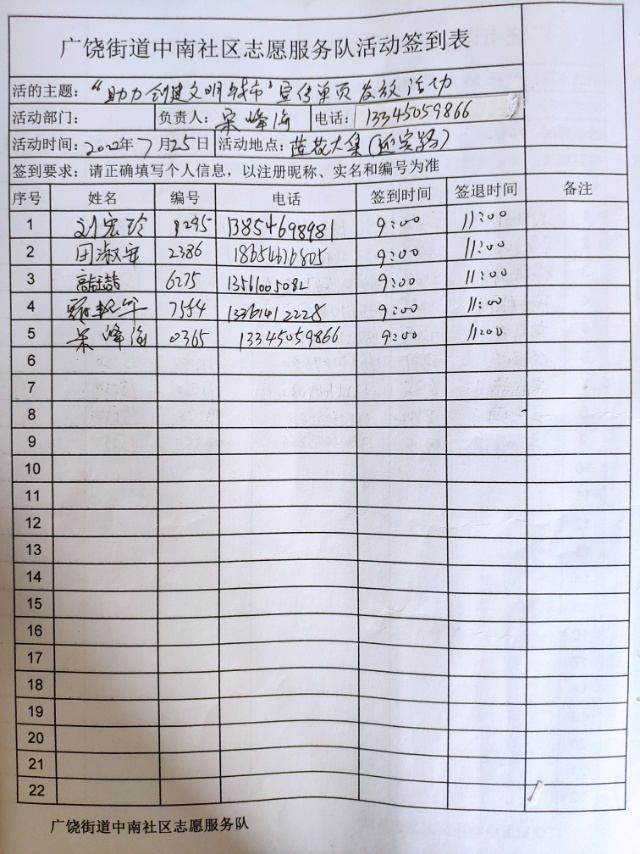 广饶街道中南社区志愿服务队活动签到表
活的主题：“助力创建文明城市”宣传单页发放活动
活动部门： 负责人：宋峰海 电话：13345059866
活动时间：2022年7月25日 活动地点：莲花大集(迎宾路)
签到要求：请正确填写个人信息，以注册昵称、实名和编号为准
序号 姓名 编号 电话 签到时间 签退时间 备注
1 刘宏玲 9295 13854698981 9:00 11:00
2 田淑军 2386 9:00 11:00
3 高喆喆 6275 13561005082 9:00 11:00
4 7554 9:00 11:00
5 宋峰海 0365 13345059866 9:00 11:00
6
7
8
9
10
11
12
13
14
15
16
17
18
19
20
21
22
广饶街道中南社区志愿服务队